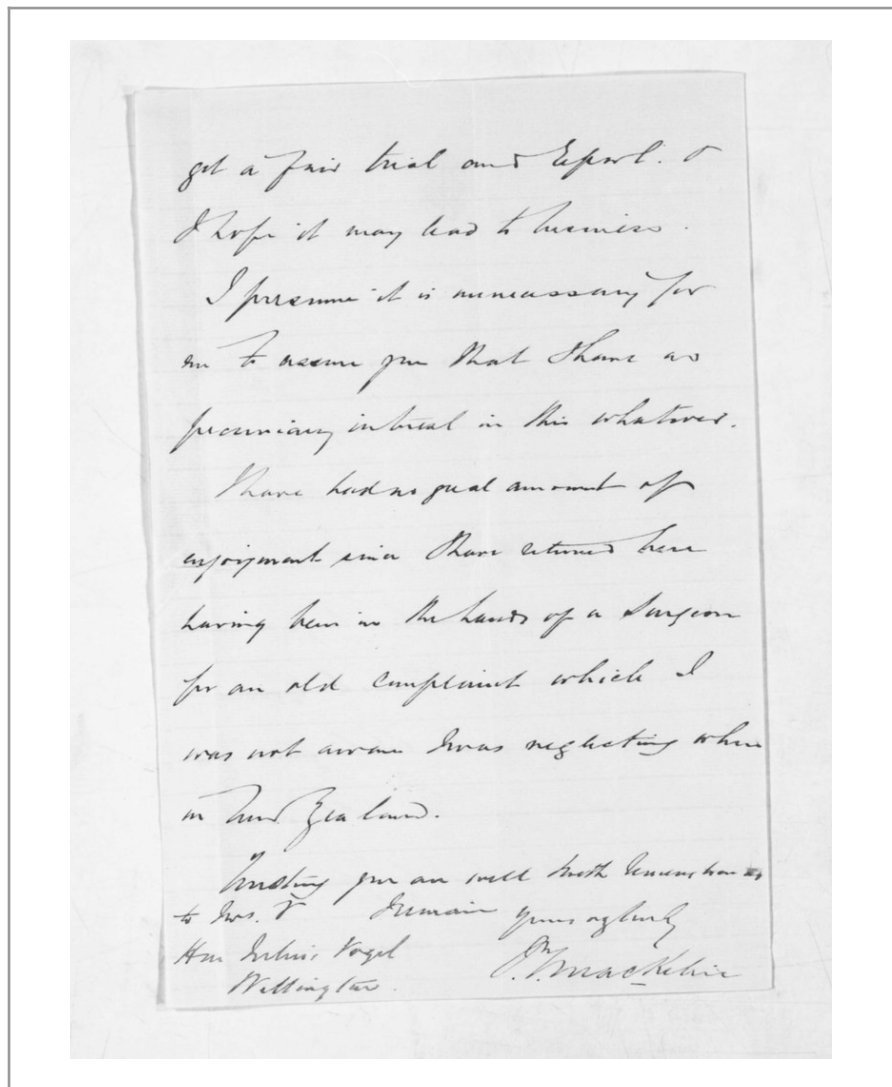 got a fair trial and Report. &
I hope it may lead to business.
I presume it is unnecessary for
me to assure you that I have no
pecuniary interest in this whatever.
I have had no great amount of
enjoyment since I have returned here
having been in the hands of a Surgeon
for an old complaint which I
was not aware I was neglecting when
in New Zealand.
Trusting you are well with remembrances
to Mrs. V I remain yours
Hon Julius Vogel
Wellington.
MacKelvie